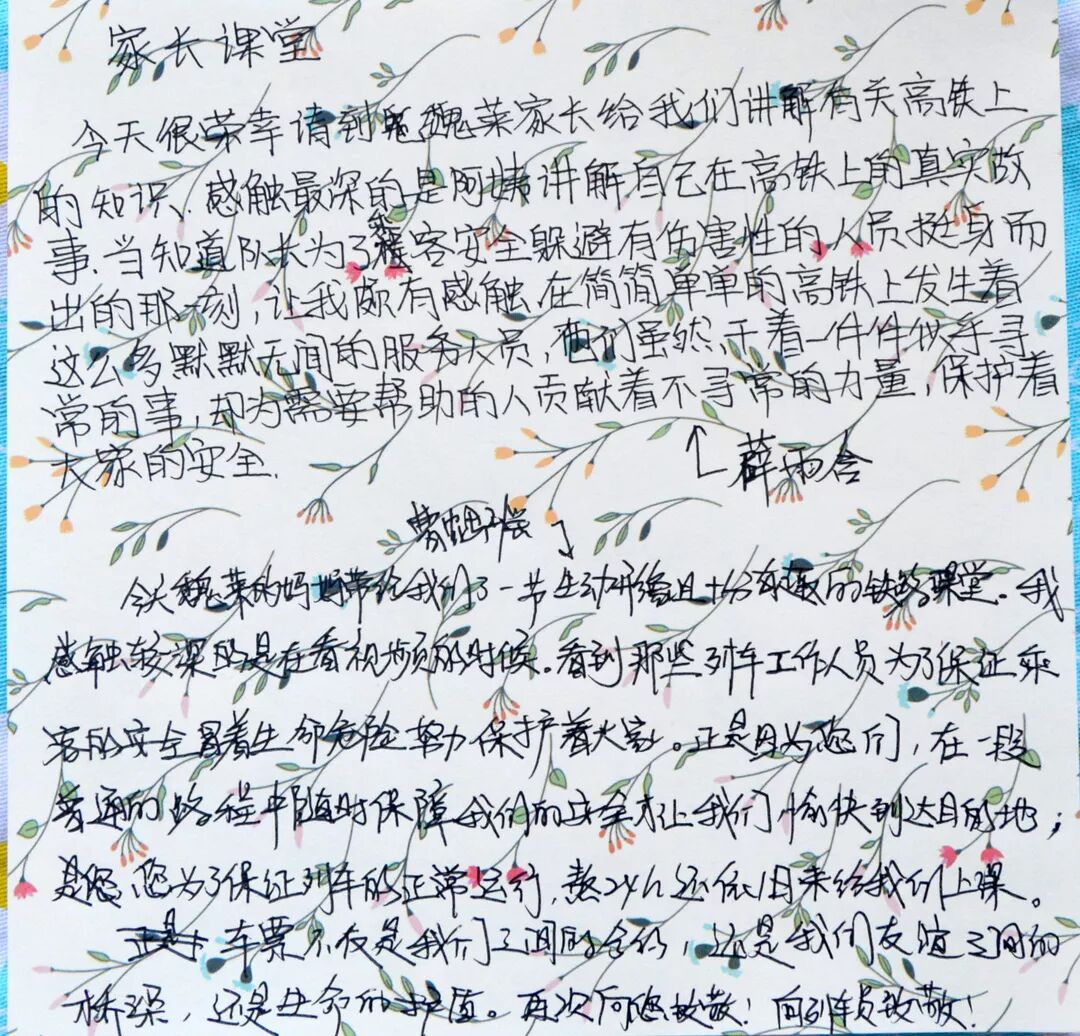 家长课堂
今天很荣幸请到魏莱家长给我们讲解有关高铁上
的知识、感触最深的是阿姨讲解自己在高铁上的真实故
事.当知道队长为了乘客安全躲避有伤害性的人员挺身而
出的那一刻,让我颇有感触.在简简单单的高铁上发生着
这么多默默无闻的服务人员,他们虽然干着一件件似乎寻
常的事,却为需要帮助的人贡献着不寻常的力量,保护着
大家的安全.
薛雨含
今天魏莱的妈妈带给我们了一节生动形象且十分有趣的铁路课堂。我
感触较深的是在看视频的时候。看到那些列车工作人员为了保证乘
客的安全冒着生命危险努力保护着大家。正是因为您们,在一段
普通的路程中随时保障我们的安全才让我们愉快到达目的地;
是您,您为了保证列车的正常运行,熬24h还依旧来给我们上课。
车票不仅是我们之间的合约,还是我们友谊之间的
桥梁,还是生命的。再次向您致敬!向列车员致敬!